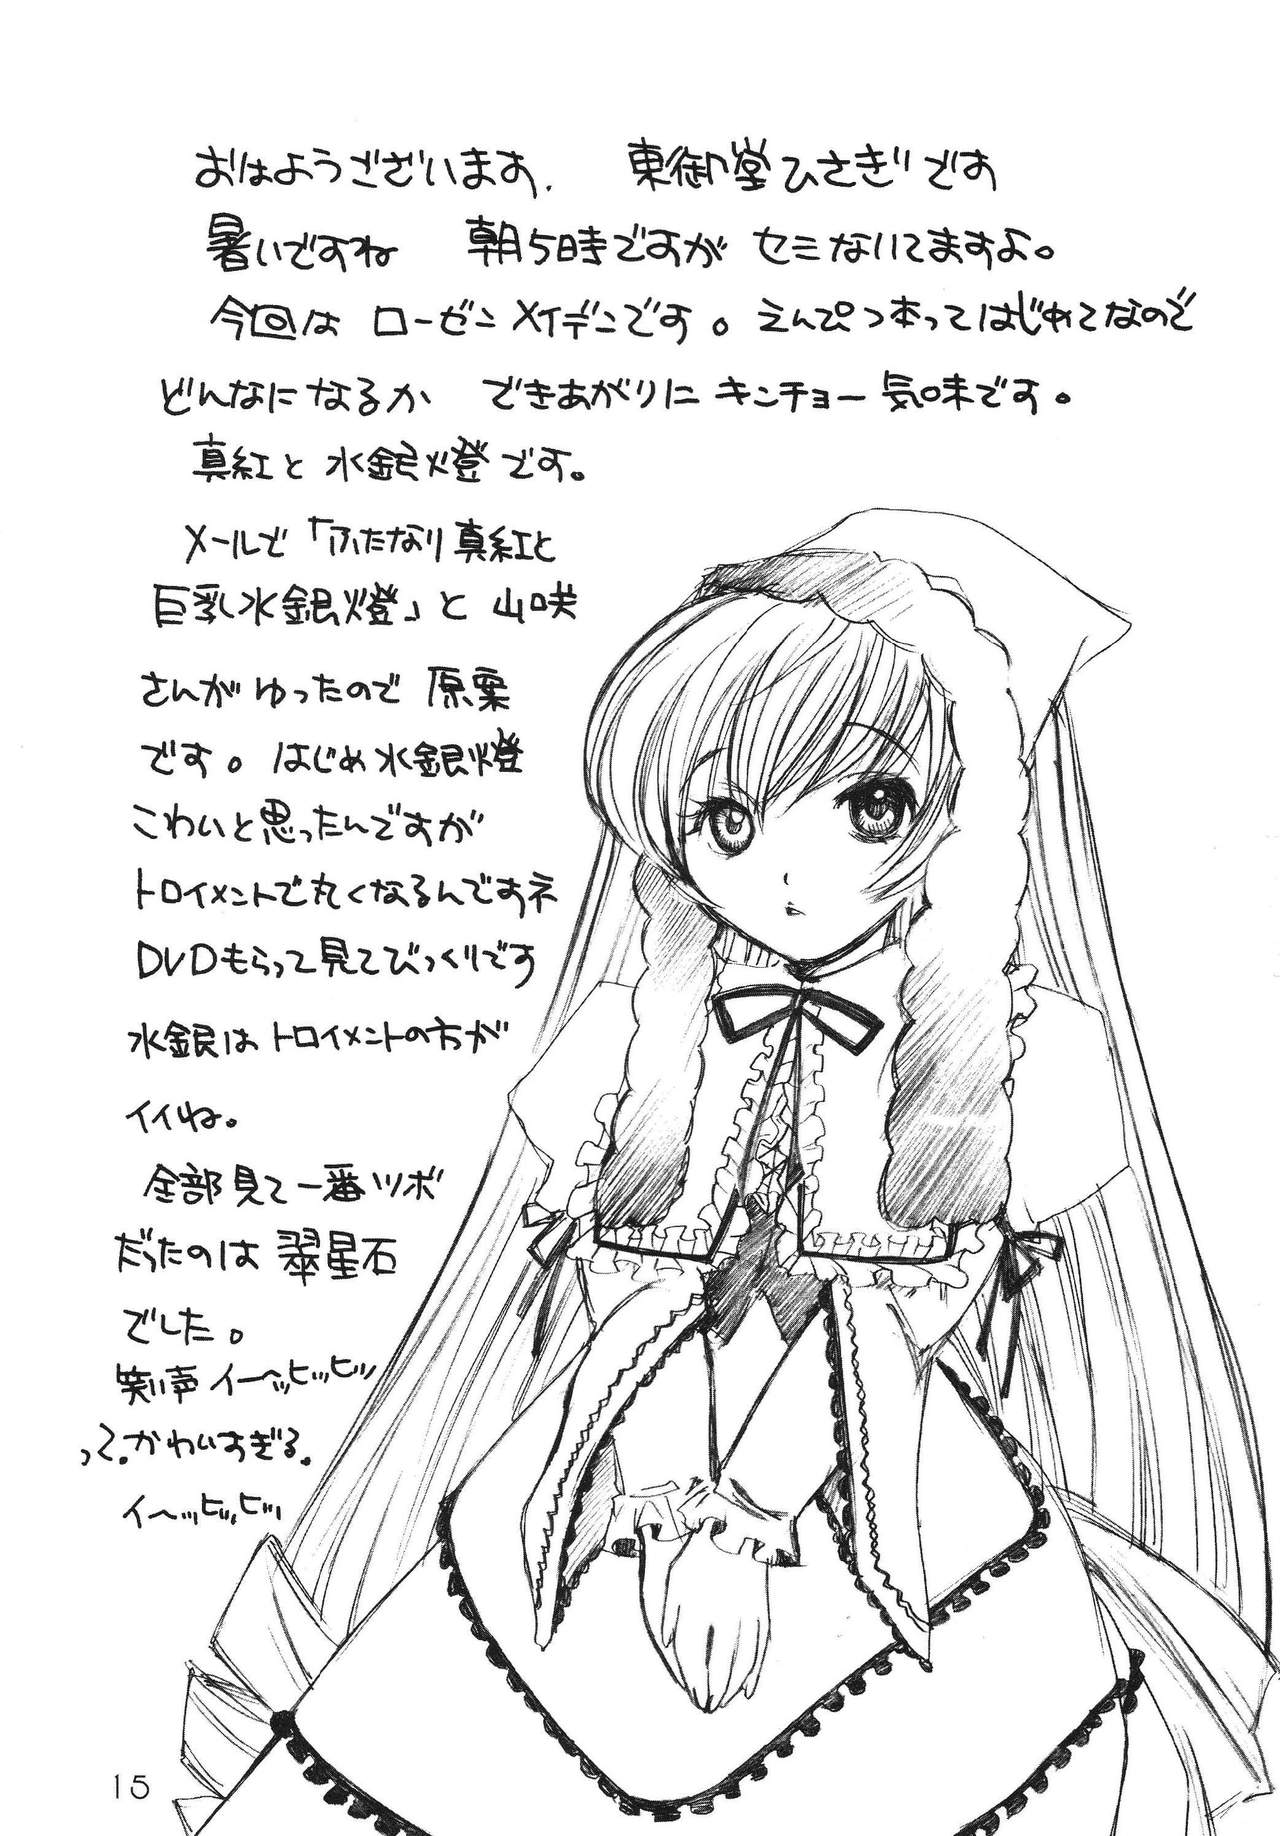 おはようございます. 東御堂ひさぎです
暑いですね 朝5時ですが セミないてますよ。
今回は ローゼンメイデンです。えんぴつ本ってはじめてなので
どんなになるか できあがりに キンチョー気味です。
真紅と水銀燈です。
メールで「ふたなり真紅と
巨乳水銀燈」と 山咲
さんが ゆったので 原案
です。はじめ水銀燈
こわいと思ったんですが
トロイメントで丸くなるんですネ
DVDもらって見てびっくりです
水銀は トロイメントの方が
イイね。
全部見て一番ツボ
だったのは 翠星石
でした。
笑い声イーッヒッヒッヒッ
って.かわいすぎる.
イーッヒッヒッヒッ
15